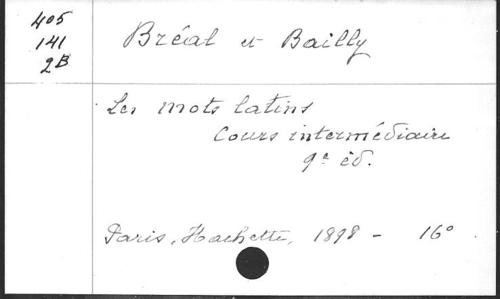 405
141
2B
Bréal et Bailly
Les mots latins
Cours intermédiaire
9e éd.
Paris, Hachette, 1898 - 16°